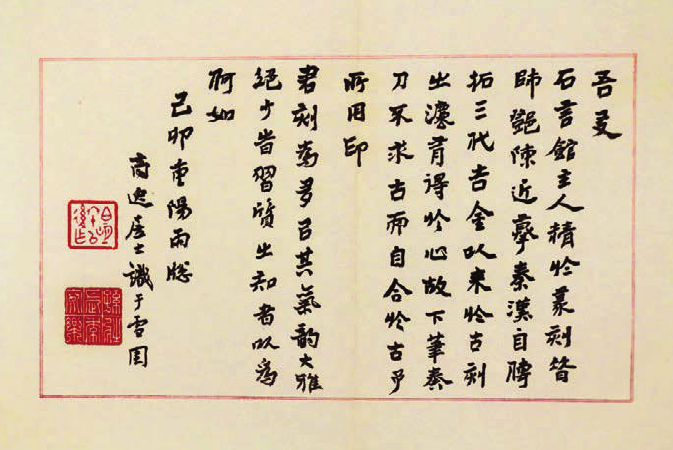 吾友
石言館主人精於篆刻昔
師鄧陳近摹秦漢自
拓三代吉金以来於古刻
之灋有得於心故下筆奏
刀不求古而自合於古予
所用印
君刻為多㠯其氣韵大雅
絕少旹習質之知者以為
何如
己卯重陽雨牕
居士識于雪園